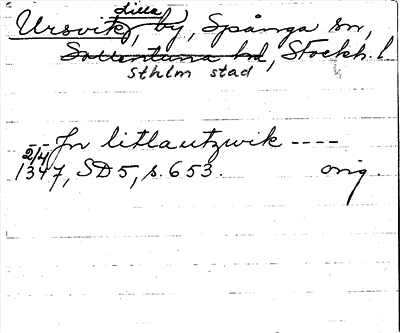 (lilla)
Ursvik, by, Spånga sn,
Sollentuna hd, Stockh. l
Sthlm stad
Jn litlautzwik ----
2/4
1347, SD 5, s. 653. orig.